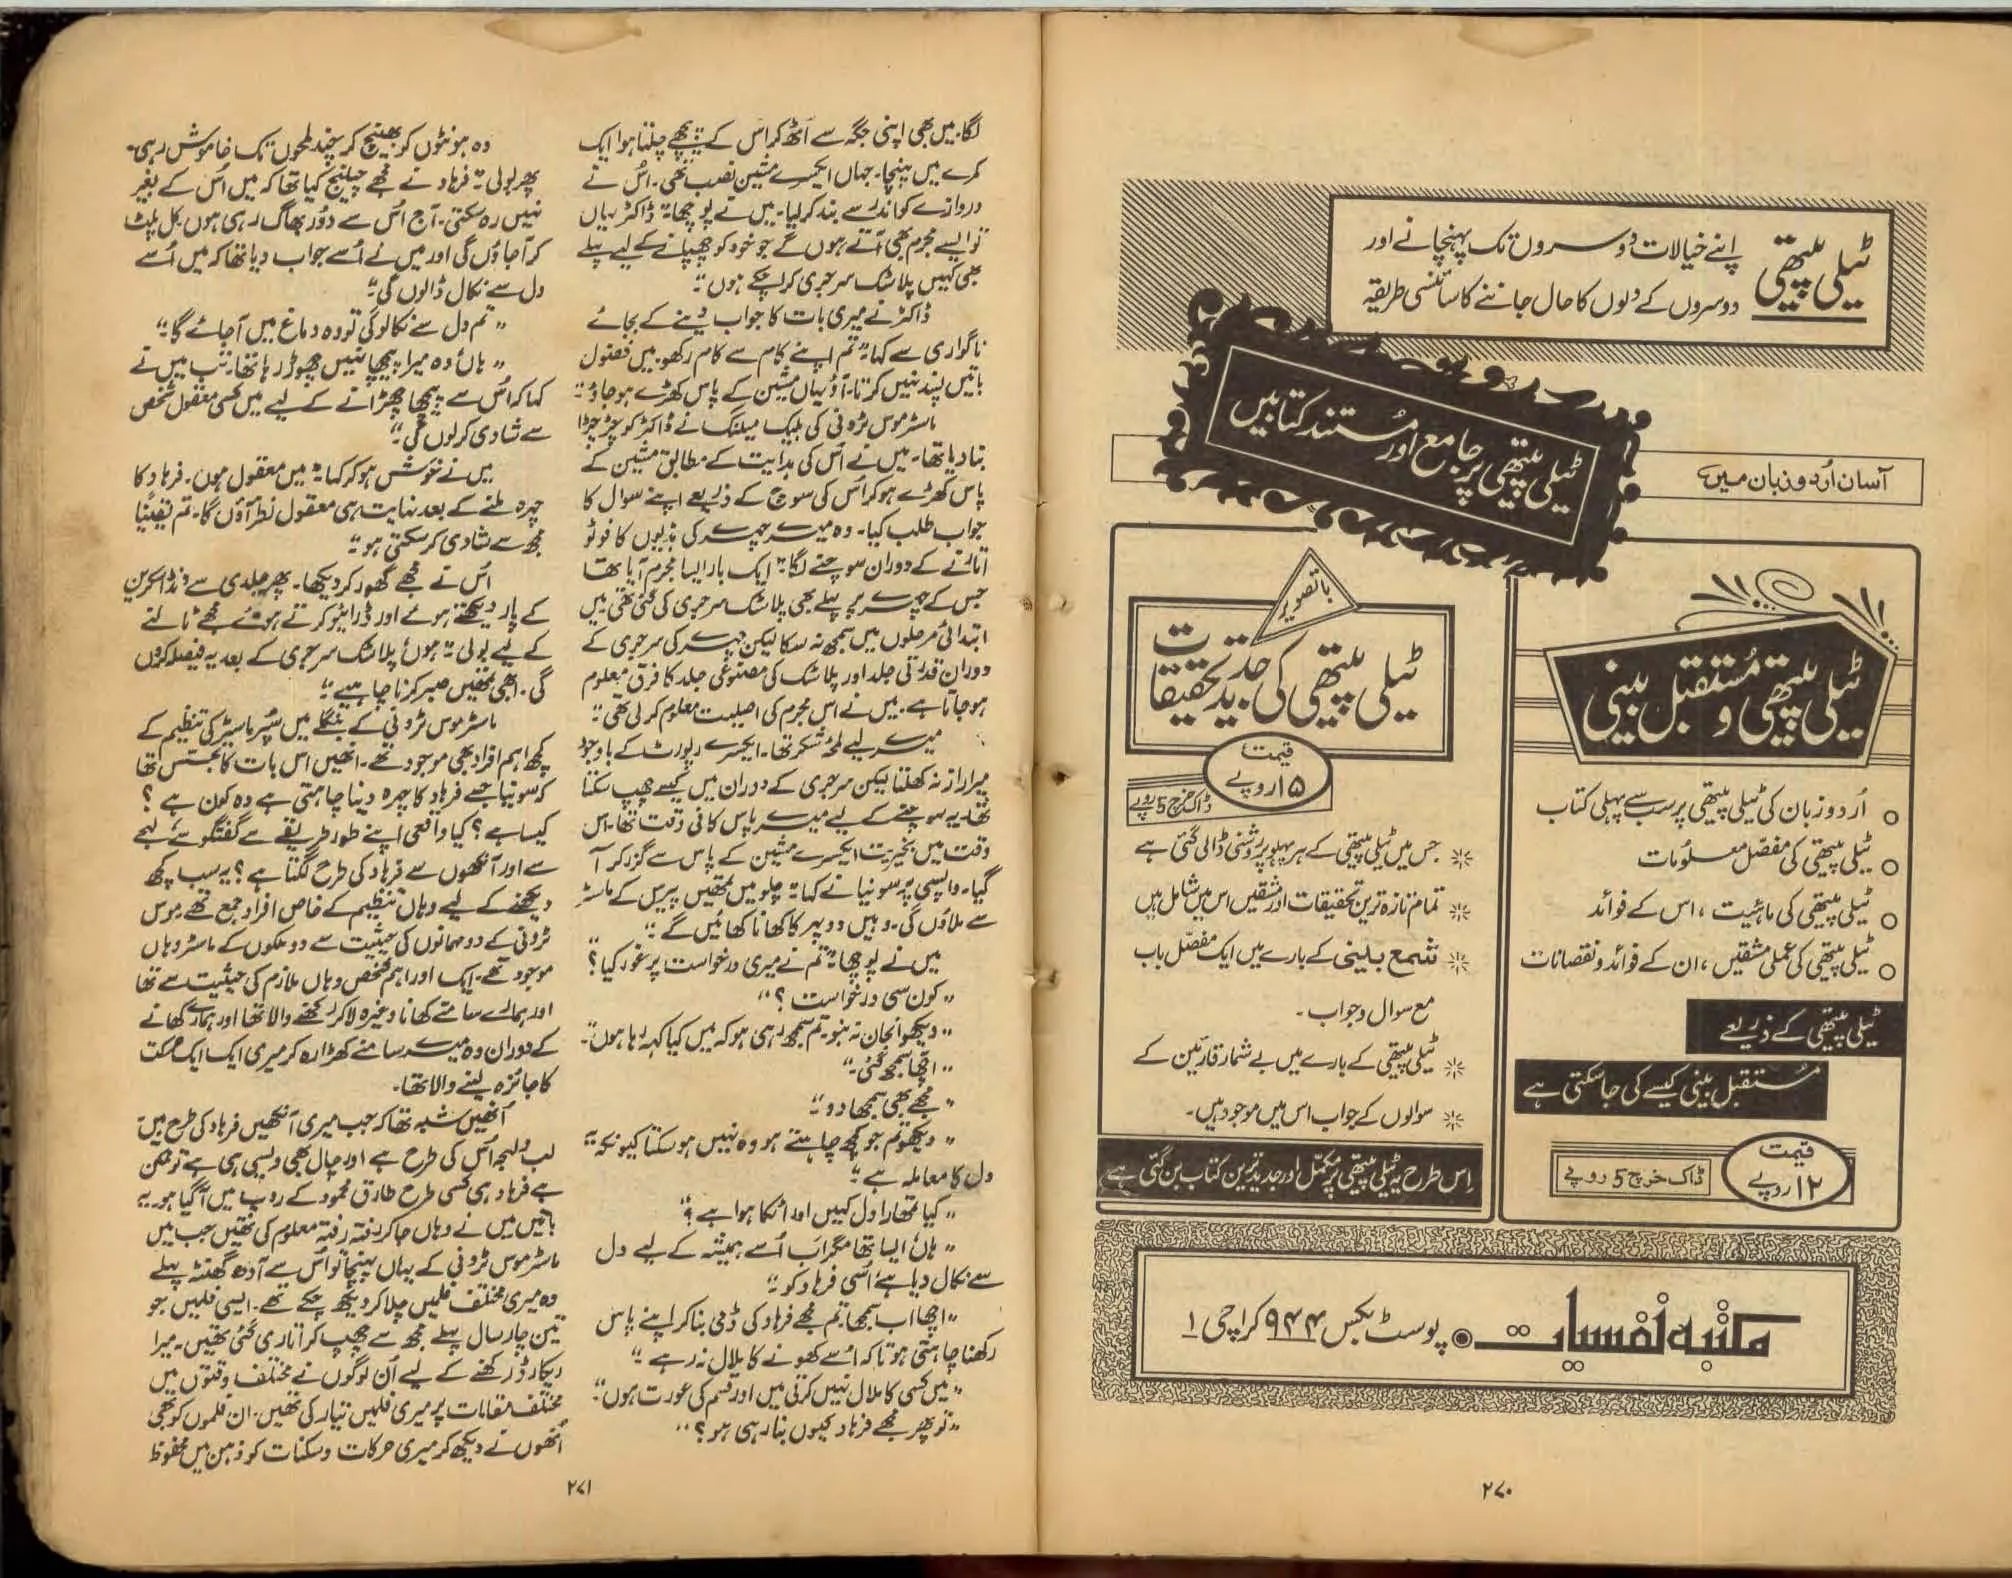 ٹیلی پیتھی
اپنے خیالات دوسروں تک پہنچانے اور
دوسروں کے دلوں کا حال جاننے کا سائنسی طریقہ
ٹیلی پیتھی پر جامع اور مُستند کتابیں
آسان اُردو زبان میں
ٹیلی پیتھی و مُستقبل بینی
اُردو زبان کی ٹیلی پیتھی پر سب سے پہلی کتاب
ٹیلی پیتھی کی مفصّل معلومات
ٹیلی پیتھی کی ماہیت ، اس کے فوائد
ٹیلی پیتھی کی عملی مشقیں ، ان کے فوائد و نقصانات
ٹیلی پیتھی کے ذریعے
مُستقبل بینی کیسے کی جا سکتی ہے
قیمت
۱۲ روپے
ڈاک خرچ 5 روپے
باتصویر
ٹیلی پیتھی کی جدید تحقیقات
قیمت
۱۵ روپے
ڈاک خرچ 5 روپے
جس میں ٹیلی پیتھی کے ہر پہلو پر روشنی ڈالی گئی ہے
تمام تازہ ترین تحقیقات اور مشقیں اس میں شامل ہیں
شمع بینی کے بارے میں ایک مفصّل باب
مع سوال و جواب ۔
ٹیلی پیتھی کے بارے میں بے شمار قارئین کے
سوالوں کے جواب اس میں موجود ہیں۔
اِس طرح یہ ٹیلی پیتھی پر مکمّل اور جدید ترین کتاب بن گئی ہے
مکتبہ نفسیات ◉ پوسٹ بکس ۹۴۴ کراچی ۱
۲۷۰
لگا۔ میں بھی اپنی جگہ سے اُٹھ کر اُس کے پیچھے چلتا ہوا ایک
کمرے میں پہنچا۔ جہاں ایکسرے مشین نصب تھی۔ اُس نے
دروازے کو اندر سے بند کر لیا۔ میں نے پوچھا "ڈاکٹر یہاں
تو ایسے مجرم بھی آتے ہوں گے جو خود کو چھپانے کے لیے پہلے
بھی کہیں پلاسٹک سرجری کرا چکے ہوں"
ڈاکٹر نے میری بات کا جواب دینے کے بجائے
ناگواری سے کہا "تم اپنے کام سے کام رکھو۔ میں فضول
باتیں پسند نہیں کرتا۔ آؤ یہاں مشین کے پاس کھڑے ہو جاؤ"
ماسٹر موس ٹرونی کی بلیک میلنگ نے ڈاکٹر کو چڑچڑا
بنا دیا تھا۔ میں نے اُس کی ہدایت کے مطابق مشین کے
پاس کھڑے ہو کر اُس کی سوچ کے ذریعے اپنے سوال کا
جواب طلب کیا۔ وہ میرے چہرے کی ہڈیوں کا فوٹو
اتارنے کے دوران سوچنے لگا "ایک بار ایسا مجرم آیا تھا
جس کے چہرے پر پہلے بھی پلاسٹک سرجری کی گئی تھی میں
ابتدائی مرحلوں میں سمجھ نہ سکا لیکن چہرے کی سرجری کے
دوران قدرتی جلد اور پلاسٹک کی مصنوعی جلد کا فرق معلوم
ہو جاتا ہے۔ میں نے اس مجرم کی اصلیت معلوم کر لی تھی"
میرے لیے لمحۂ فکر تھا۔ ایکسرے رپورٹ کے باوجود
میرا راز نہ کھلتا لیکن سرجری کے دوران میں کیسے چھپ سکتا
تھا۔ یہ سوچنے کے لیے میرے پاس کافی وقت تھا۔ اس
وقت میں بخیریت ایکسرے مشین کے پاس سے گزر کر آ
گیا۔ واپسی پر سونیا نے کہا "چلو میں تمھیں پیرس کے ماسٹر
سے ملاؤں گی۔ وہیں دوپہر کا کھانا کھائیں گے"
میں نے پوچھا "تم نے میری درخواست پر غور کیا؟"
"کون سی درخواست ؟"
"دیکھو انجان نہ بنو۔ تم سمجھ رہی ہو کہ میں کیا کہہ رہا ہوں"
"اچھا سمجھ گئی"
"مجھے بھی سمجھا دو"
"دیکھو تم جو کچھ چاہتے ہو وہ نہیں ہو سکتا کیونکہ یہ
دل کا معاملہ ہے"
"کیا تمھارا دل کہیں اور اٹکا ہوا ہے ؟"
"ہاں ایسا تھا مگر اب اُسے ہمیشہ کے لیے دل
سے نکال دیا ہے اُسی فرہاد کو"
"اچھا اب سمجھا۔ تم مجھے فرہاد کی ڈمی بنا کر اپنے پاس
رکھنا چاہتی ہو تاکہ اُسے کھونے کا ملال نہ رہے"
"میں کسی کا ملال نہیں کرتی میں اور قسم کی عورت ہوں"
"تو پھر مجھے فرہاد کیوں بنا رہی ہو ؟"
وہ ہونٹوں کو بھینچ کر چند لمحوں تک خاموش رہی۔
پھر بولی "فرہاد نے مجھے چیلنج کیا تھا کہ میں اُس کے بغیر
نہیں رہ سکتی۔ آج اُس سے دُور بھاگ رہی ہوں کل پلٹ
کر آ جاؤں گی اور میں نے اُسے جواب دیا تھا کہ میں اُسے
دل سے نکال ڈالوں گی"
"تم دل سے نکالو گی تو وہ دماغ میں آ جائے گا"
"ہاں وہ میرا پیچھا نہیں چھوڑ رہا تھا۔ تب میں نے
کہا کہ اُس سے پیچھا چھڑانے کے لیے میں کسی معقول شخص
سے شادی کر لوں گی"
میں نے خوش ہو کر کہا "میں معقول ہوں۔ فرہاد کا
چہرہ ملنے کے بعد نہایت ہی معقول نظر آؤں گا۔ تم یقیناً
مجھ سے شادی کر سکتی ہو"
اُس نے مجھے گھور کر دیکھا۔ پھر جلدی سے ونڈ اسکرین
کے پار دیکھتے ہوئے اور ڈرائیو کرتے ہوئے مجھے ٹالنے
کے لیے بولی "ہوں پلاسٹک سرجری کے بعد یہ فیصلہ کروں
گی۔ ابھی تمھیں صبر کرنا چاہیے"
ماسٹر موس ٹرونی کے بنگلے میں سُپر ماسٹر کی تنظیم کے
کچھ اہم افراد بھی موجود تھے۔ انھیں اس بات کا تجسّس تھا
کہ سونیا جسے فرہاد کا چہرہ دینا چاہتی ہے وہ کون ہے ؟
کیسا ہے ؟ کیا واقعی اپنے طور طریقے سے گفتگو سے لہجے
سے اور آنکھوں سے فرہاد کی طرح لگتا ہے ؟ یہ سب کچھ
دیکھنے کے لیے وہاں تنظیم کے خاص افراد جمع تھے۔ موس
ٹرونی کے دو مہمانوں کی حیثیت سے دو ملکوں کے ماسٹر وہاں
موجود تھے۔ ایک اور اہم شخص وہاں ملازم کی حیثیت سے تھا
اور ہمارے سامنے کھانا وغیرہ لا کر رکھنے والا تھا اور ہمارے کھانے
کے دوران وہ میرے سامنے کھڑا رہ کر میری ایک ایک حرکت
کا جائزہ لینے والا تھا۔
اُنھیں شبہ تھا کہ جب میری آنکھیں فرہاد کی طرح ہیں
لب و لہجہ اُس کی طرح ہے اور چال بھی ویسی ہی ہے تو ممکن
ہے فرہاد ہی کسی طرح طارق محمود کے روپ میں آ گیا ہو۔ یہ
باتیں میں نے وہاں جا کر رفتہ رفتہ معلوم کی تھیں جب میں
ماسٹر موس ٹرونی کے یہاں پہنچا تو اُس سے آدھ گھنٹہ پہلے
وہ میری مختلف فلمیں چلا کر دیکھ چکے تھے۔ ایسی فلمیں جو
تین چار سال پہلے مجھ سے چھپ کر اتاری گئی تھیں۔ میرا
ریکارڈ رکھنے کے لیے اُن لوگوں نے مختلف وقتوں میں
مختلف مقامات پر میری فلمیں تیار کی تھیں۔ ان فلموں کو بھی
اُنھوں نے دیکھ کر میری حرکات و سکنات کو ذہن میں محفوظ
۲۷۱